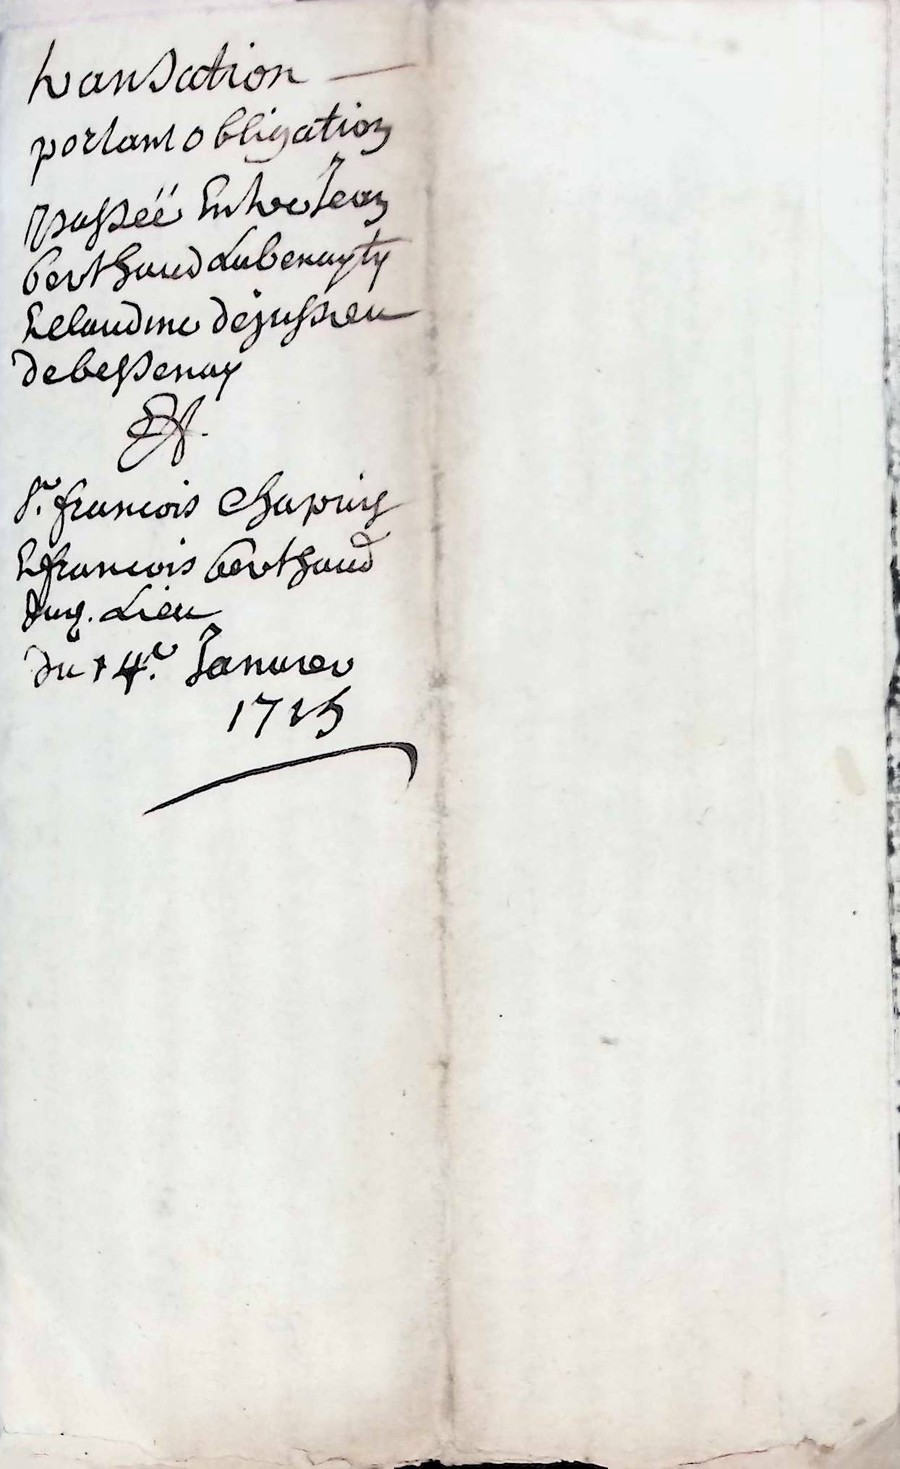 transation
portant obligation
passëë Entre Jean
berthaud Labenayty
Et claudine dejussieu
de bessenay
Et
Sr. francois Chapuis
Et francois berthaud
dud. Lieu
du 14e. Januier
1715